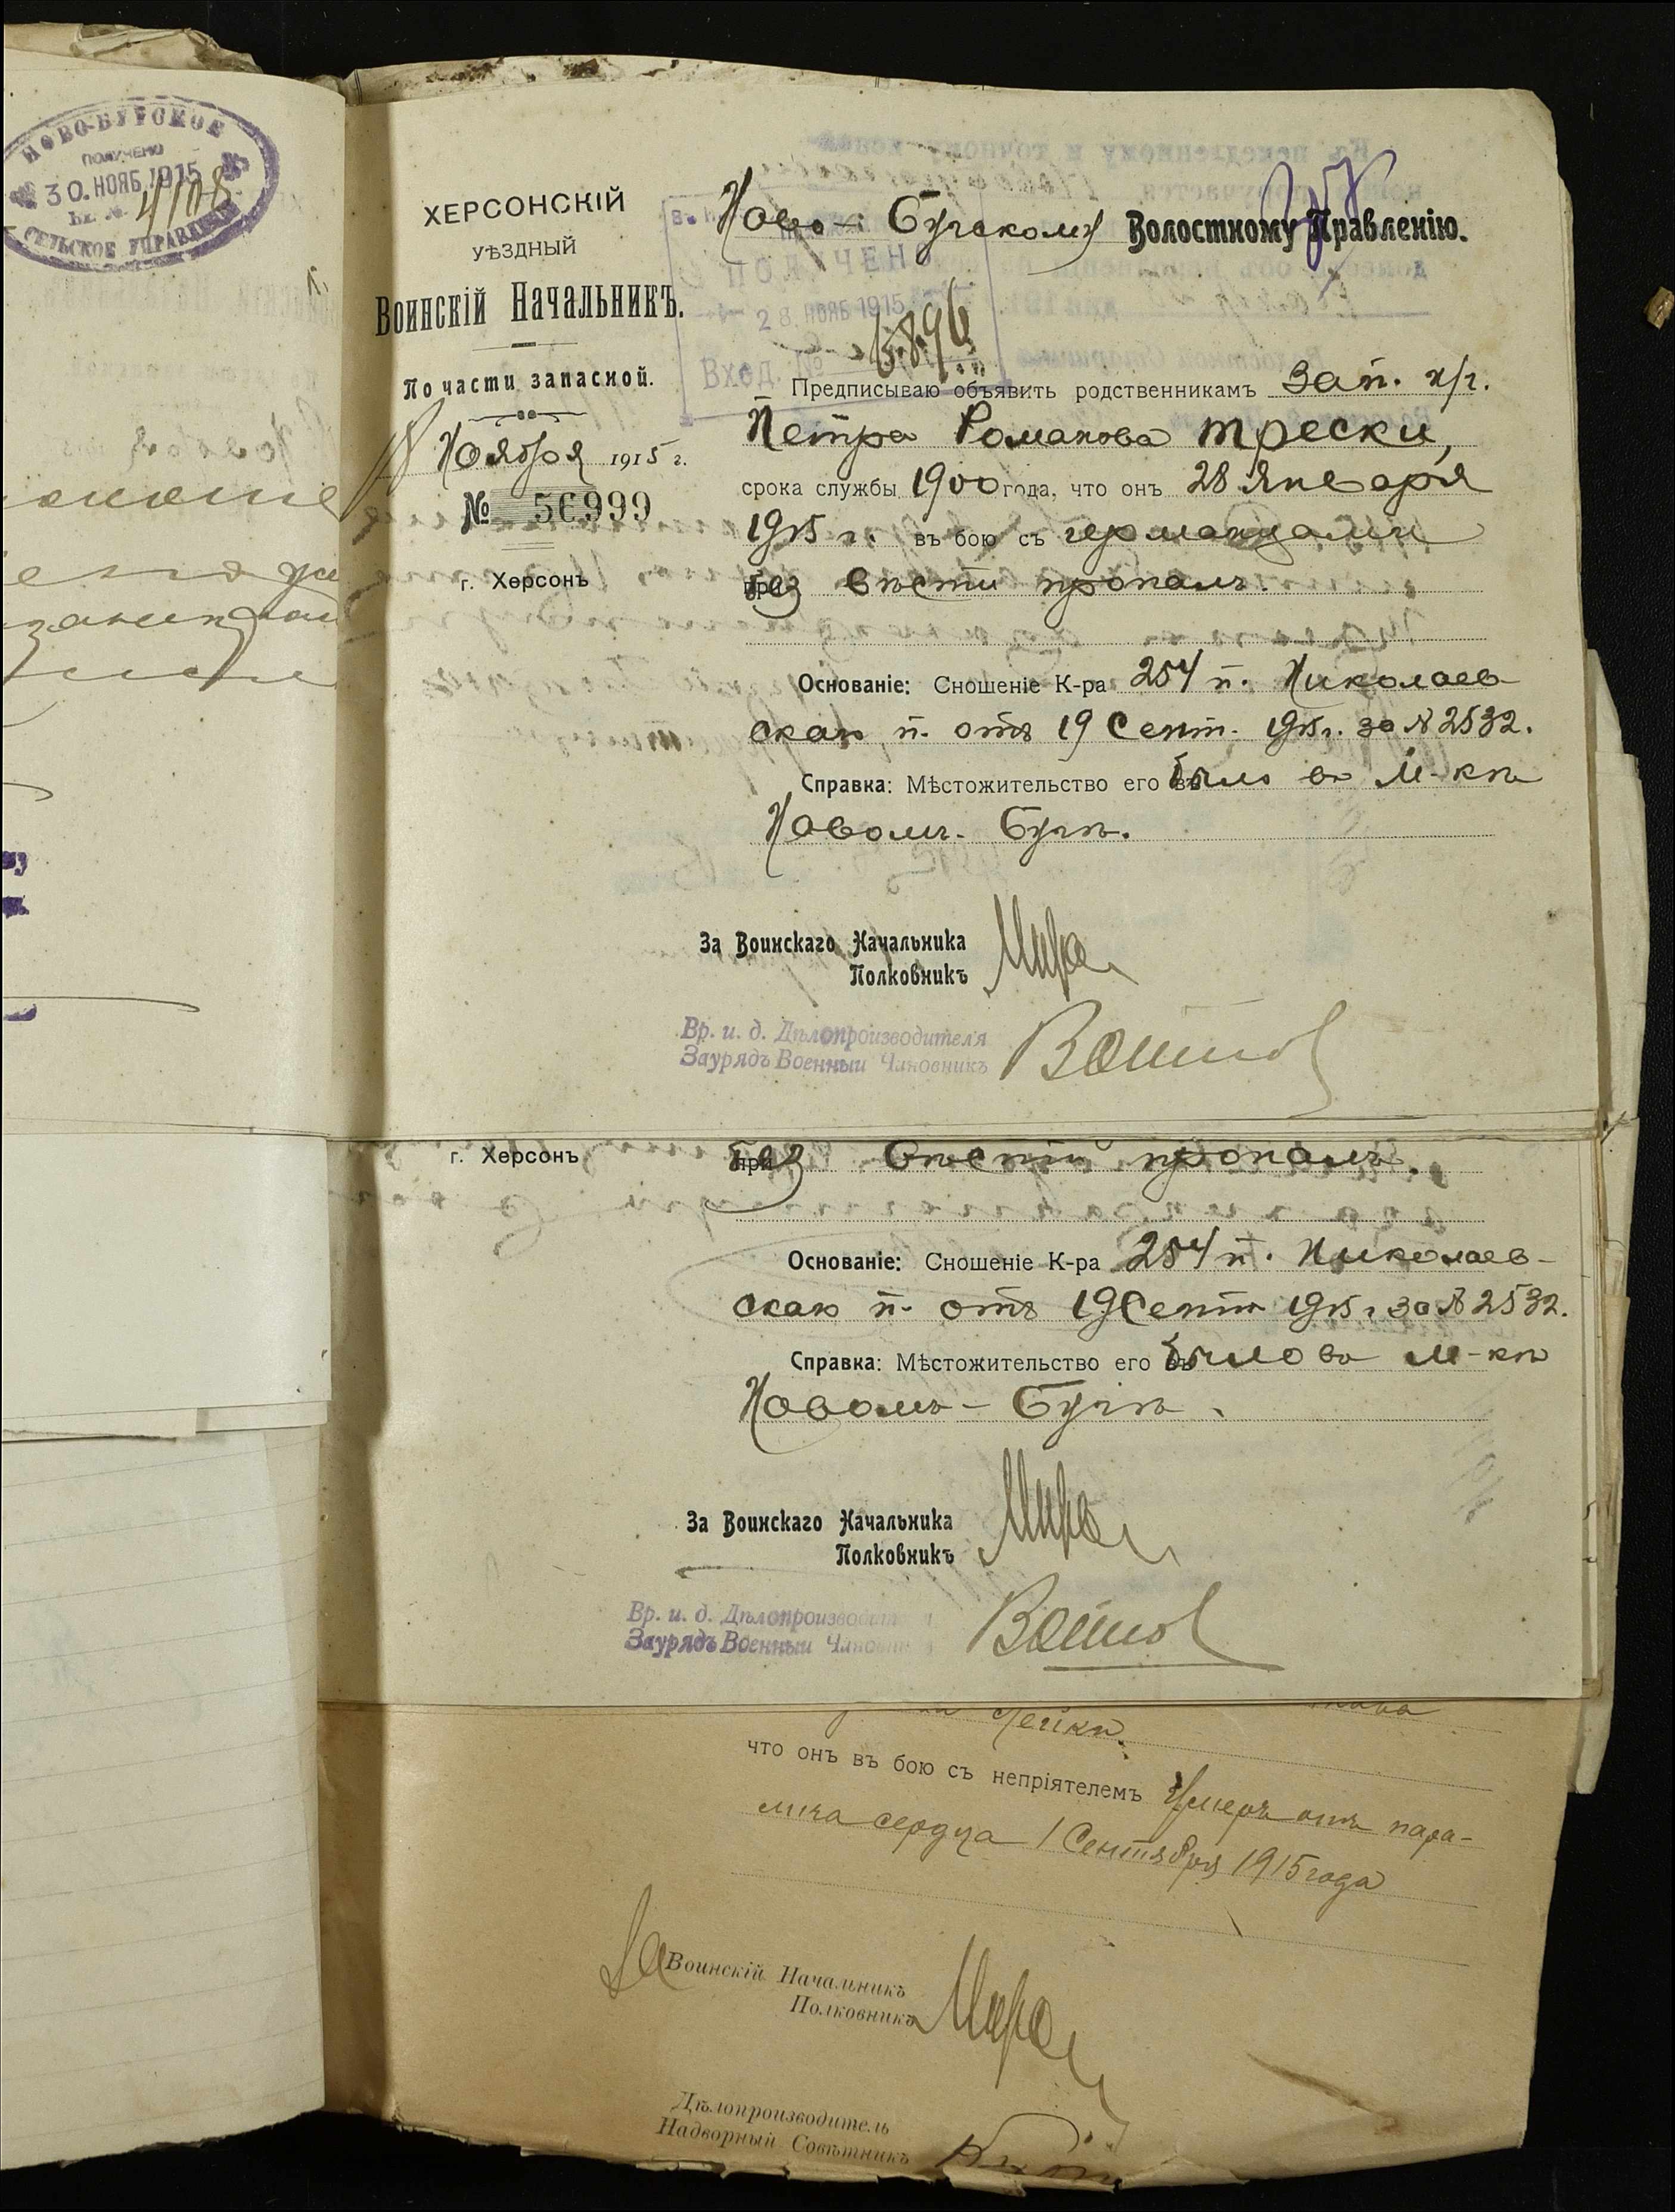 НОВО-БУГСКОЕ
ПОЛУЧЕНО
30. НОЯБ 1915
Вх. № 4108
СЕЛЬСКОЕ УПРАВЛЕНІЕ
ХЕРСОНСКІЙ
УѢЗДНЫЙ
ВОИНСКІЙ НАЧАЛЬНИКЪ.
По части запасной.
18 Ноября 1915 г.
№ 56999
г. Херсонъ
Ново-Бугскому Волостному Правленію.
ПОЛУЧЕНО
28. НОЯБ 1915
Вход. №
Предписываю объявить родственникамъ Зап. н/г.
Петра Романова Трески,
срока службы 1900 года, что онъ 28 Января
1915 г. въ бою съ германцами
без вѣсти пропалъ.
Основаніе: Сношеніе К-ра 254 п. Николаев-
скаго п. отъ 19 Сент. 1915 г. за № 2532.
Справка: Мѣстожительство его было въ М-кѣ
Новомъ-Бугѣ.
За Воинскаго Начальника
Полковникъ
Вр. и. д. Дѣлопроизводителя
Заурядъ Военный Чиновникъ
г. Херсонъ
без вѣсти пропалъ.
Основаніе: Сношеніе К-ра 254 п. Николаев-
скаго п. отъ 19 Сент 1915 г за № 2532.
Справка: Мѣстожительство его было въ М-кѣ
Новомъ-Бугѣ.
За Воинскаго Начальника
Полковникъ
Вр. и. д. Дѣлопроизводителя
Заурядъ Военный Чиновникъ
что онъ въ бою съ непріятелемъ Умеръ отъ пара-
лича сердца 1 Сентября 1915 года
За Воинскій Начальникъ
Полковникъ
Дѣлопроизводитель
Надворный Совѣтникъ